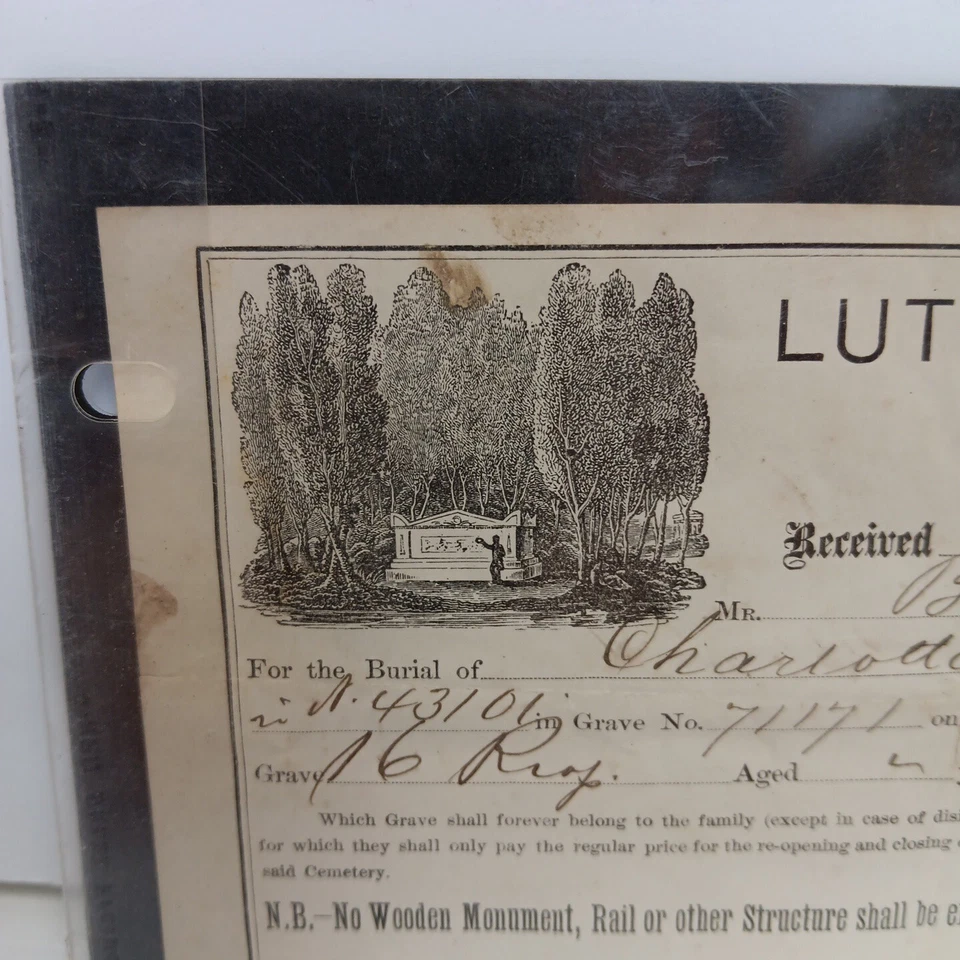 LUT
Received
MR. B
For the Burial of Charlotte
in N. 43101 in Grave No. 71171 on
Grave 16 Aged
Which Grave shall forever belong to the family (except in case of disi
for which they shall only pay the regular price for the re-opening and closing
said Cemetery.
N.B.—No Wooden Monument, Rail or other Structure shall be e